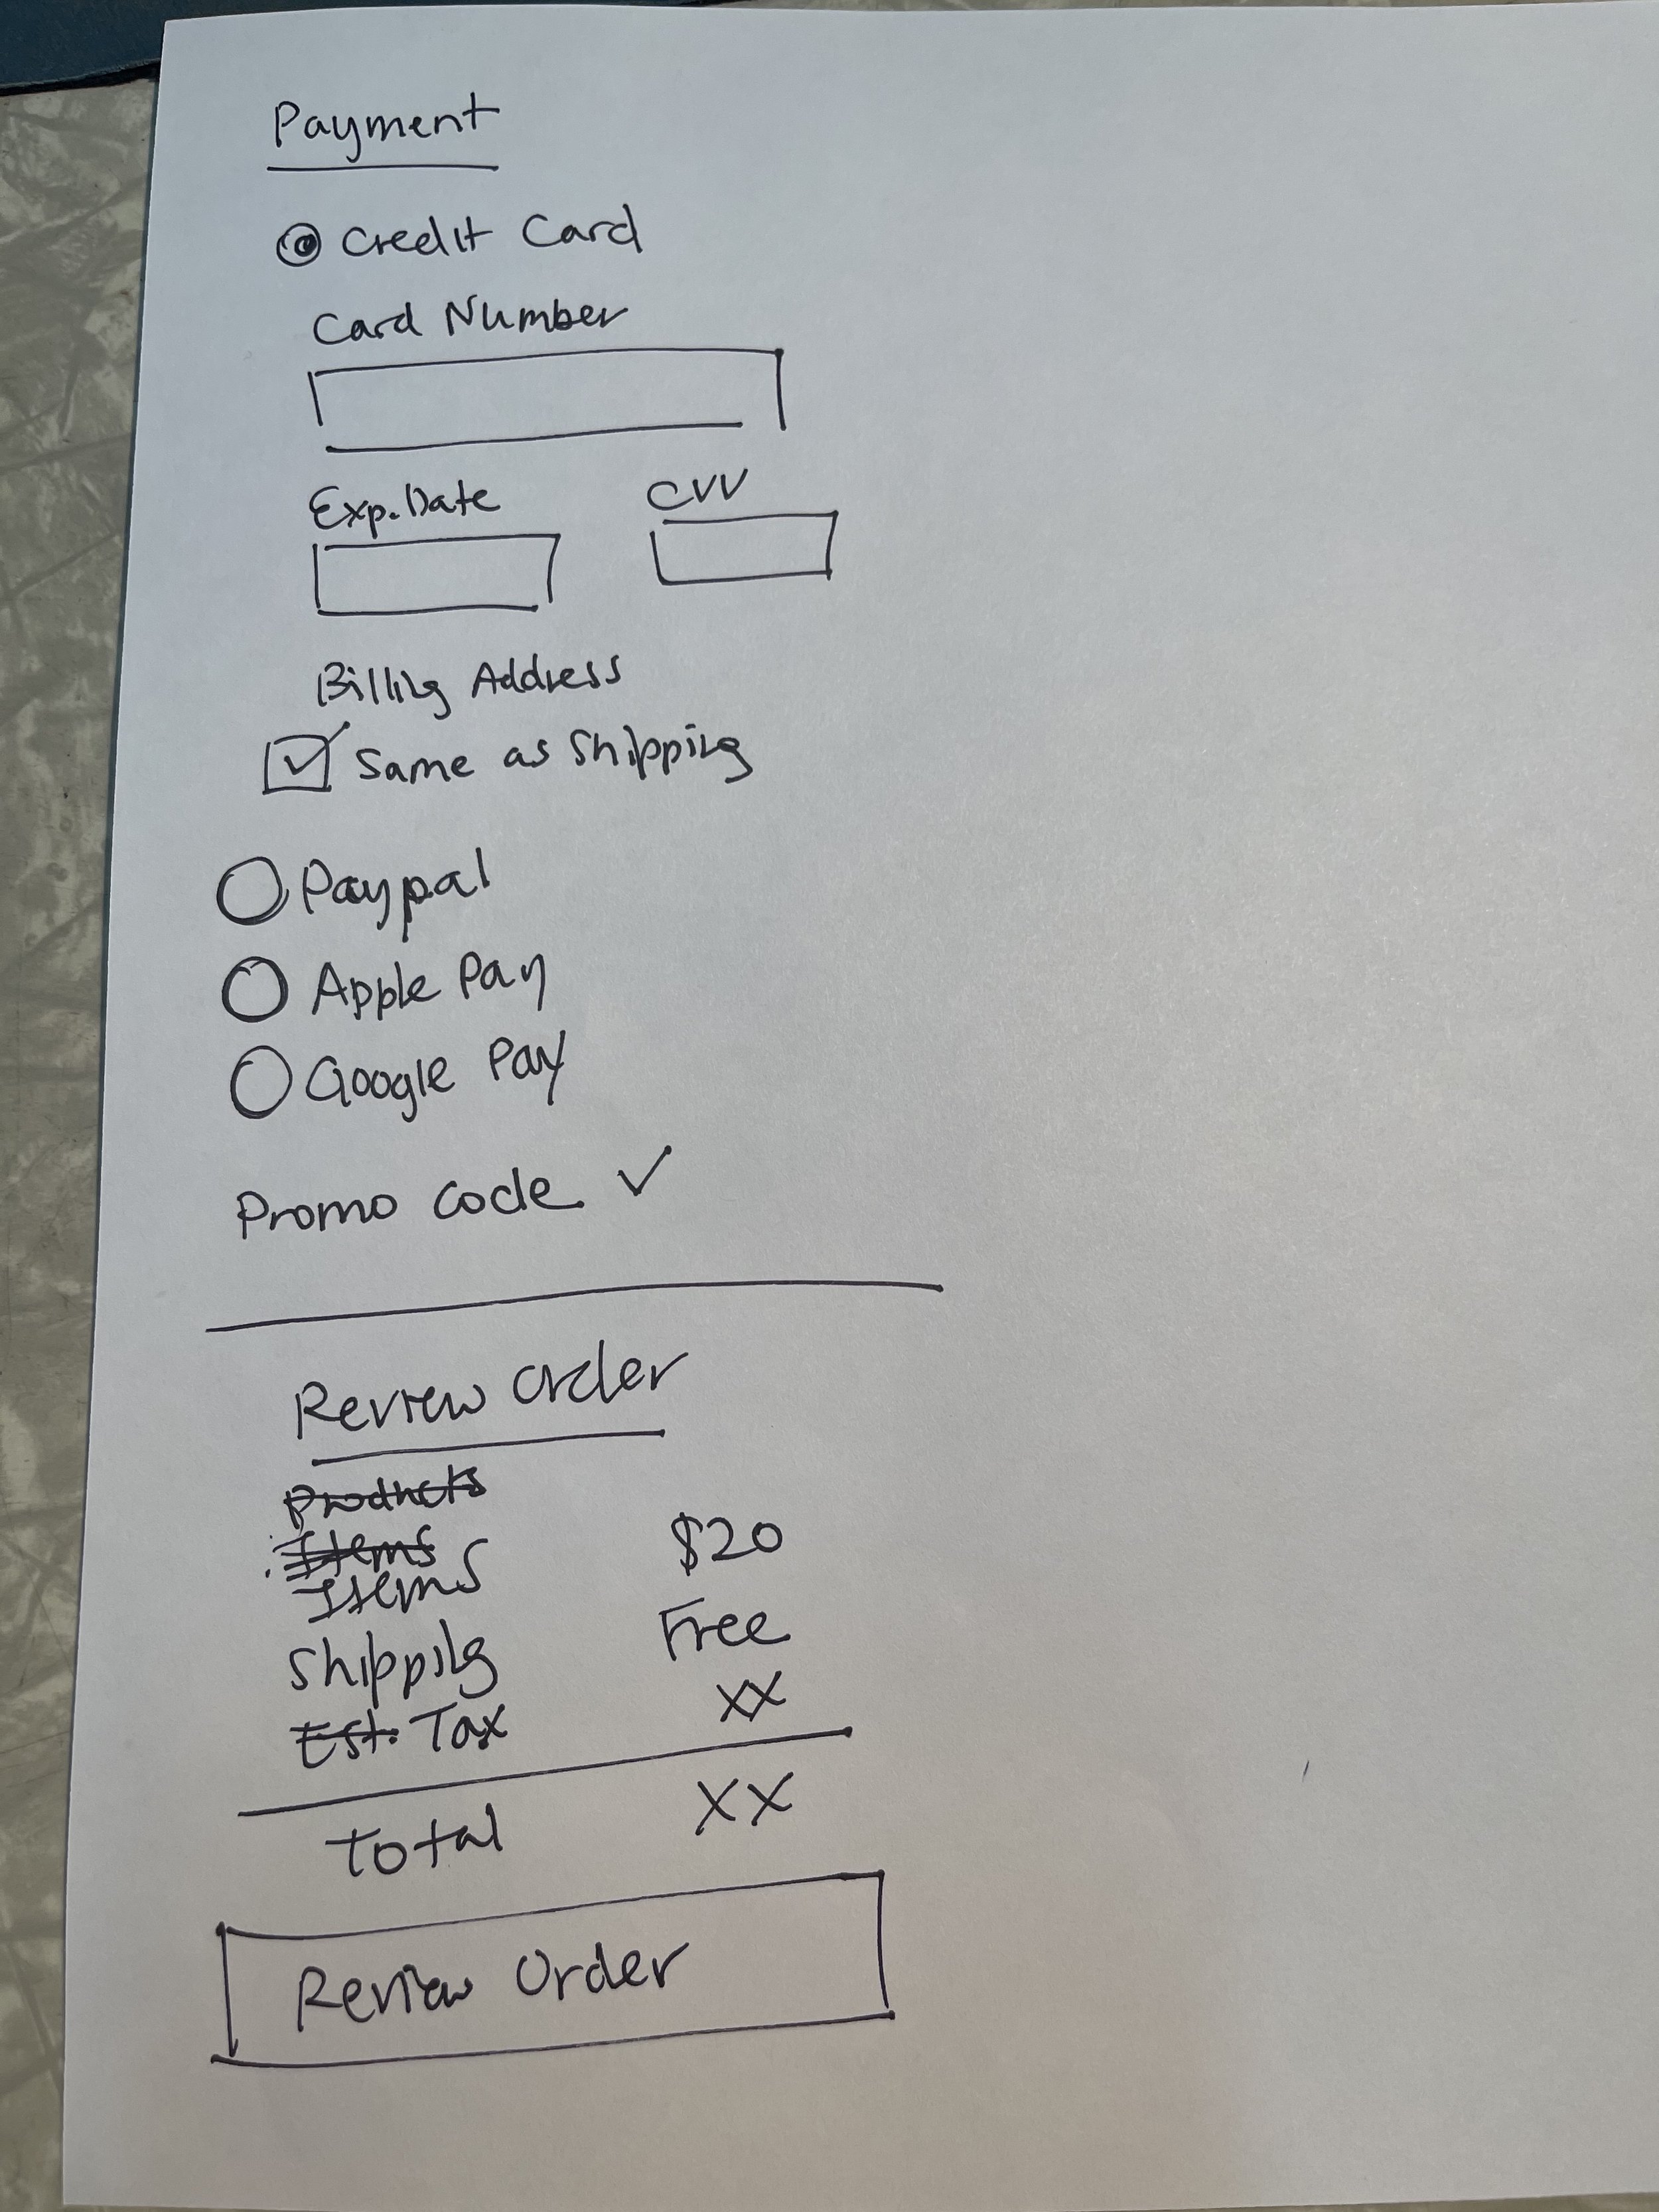 Payment
Credit Card
Card Number
Exp. Date CVV
Billing Address
Same as Shipping
Paypal
Apple Pay
Google Pay
Promo code
Review Order
Products
Items
Items $20
Shipping Free
Est. Tax XX
Total XX
Review Order